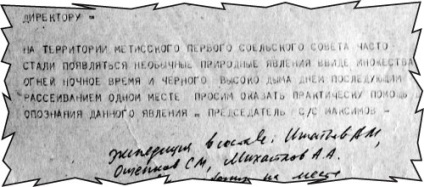 ДИРЕКТОРУ =
НА ТЕРРИТОРИИ МЕТИССКОГО ПЕРВОГО СОЕЛЬСКОГО СОВЕТА ЧАСТО
СТАЛИ ПОЯВЛЯТЬСЯ НЕОБЫЧНЫЕ ПРИРОДНЫЕ ЯВЛЕНИЯ ВВИДЕ МНОЖЕСТВА
ОГНЕЙ НОЧНОЕ ВРЕМЯ И ЧЕРНОГО ВЫСОКО ДЫМА ДНЕМ ПОСЛЕДУЮЩИМ
РАССЕИВАНИЕМ ОДНОМ МЕСТЕ ПРОСИМ ОКАЗАТЬ ПРАКТИЧЕСКУ ПОМОЩЬ
ОПОЗНАНИЯ ДАННОГО ЯВЛЕНИЯ = ПРЕДСЕДАТЕЛЬ С/С МАКСИМОВ -
Экспедиция в составе: А.М,
С.М, Михайлов А.А.
на месте